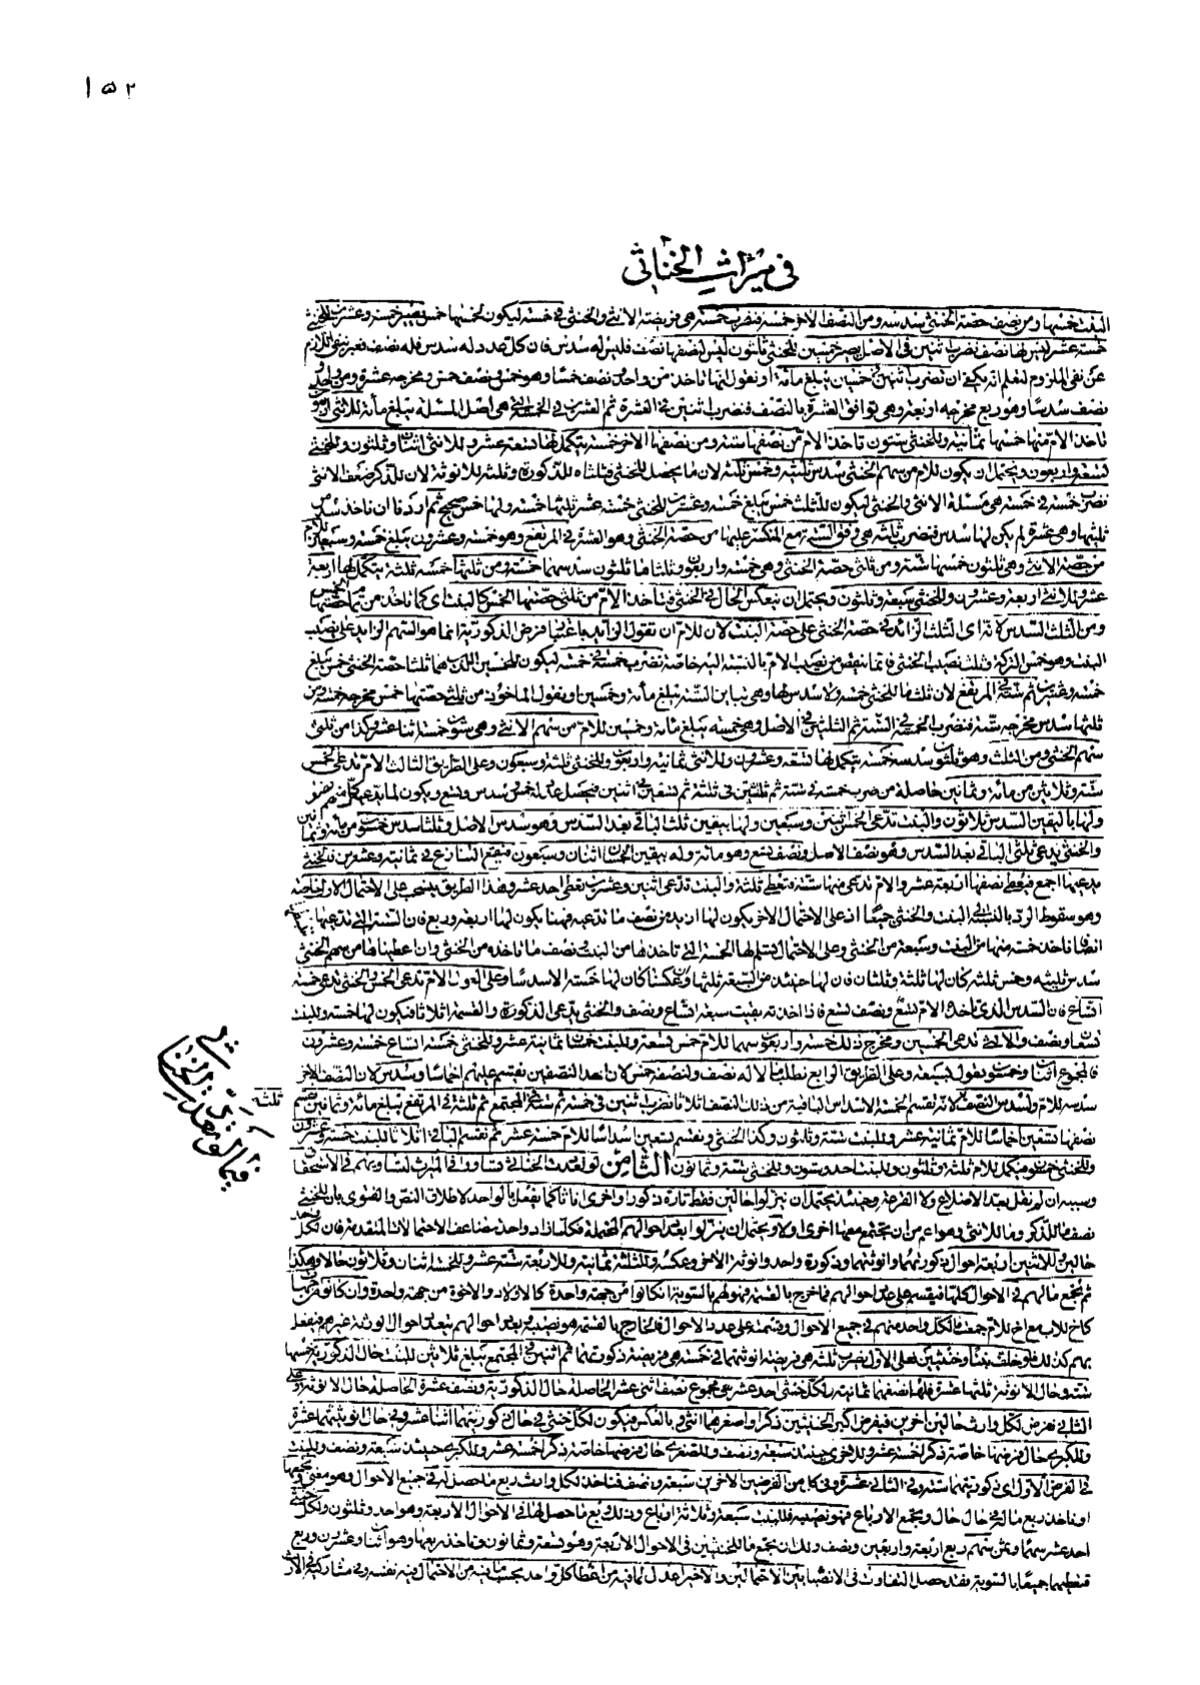 ١٥٢
في ميراث الخناثى
البنت خمسها ومن نصف حصة الخنثى سدسه ومن النصف الاخر خمسه فنضرب خمسة هي فريضة الانثى والخنثى في خمسة ليكون لخمسها خمس يصير خمسة وعشرين للخنثى
خمسة عشر ليس لها نصف نضرب اثنين في الاصل يصير خمسين للخنثى ثلثون ليس لنصفها نصف فليس له سدس فان كل عدد له سدس فله نصف فعبر بنفي اللازم
عن نفي الملزوم للعلم انه يكفي ان نضرب اثنين في خمسين يبلغ مائة او نقول انها تاخذ من واحد نصف خمسا وهو خمس ونصف خمس ومخرجه عشرة ومن واحد
نصف سدسا وهو ربع مخرجه اربعة وهي توافق العشرة بالنصف فنضرب اثنين في العشرة ثم العشرين في الخمسة التي هي اصل المسئلة تبلغ مائة للانثى اربعون
تاخذ الام منها خمسها ثمانية وللخنثى ستون تاخذ الام من نصفها ستة ومن نصفها الاخر خمسة يتكمل لها تسعة عشر وللانثى اثنان وثلثون وللخنثى
تسعة واربعون ويحتمل ان يكون للام من سهم الخنثى سدس ثلثيه وخمس ثلثه لان ما يحصل للخنثى فثلثاه للذكورة وثلثه للانوثة لان للذكر ضعف الانثى
نضرب خمسة في خمسة هي مسئلة الانثى والخنثى ليكون للثلث خمس تبلغ خمسة وعشرين للخنثى خمسة عشر ثلثها خمسة ولها خمس صحيح ثم اردفا ان تاخذ سدس
ثلثيها وهي عشرة لم يكن لها سدس فنضرب ثلثة هي وفق الستة مع المنكسر عليها من حصة الخنثى وهو العشرة في المرتفع وهو خمسة وعشرون يبلغ خمسة وسبعين للام
من حصة الانثى وهي ثلثون خمسها ستة ومن ثلثي حصة الخنثى وهي خمسة واربعون وثلثاها ثلثون سدسهما خمسة ومن ثلثها خمسه ثلثة يتكمل لها اربعة
عشر وللانثى اربعة وعشرون وللخنثى سبعة وثلثون ويحتمل ان ينعكس الحال في الخنثى فتاخذ الام من ثلثي حصتها الخمس كالبنت اي كما تاخذ من تمام حصتها الخمس
ومن الثلث السدس لانه اي الثلث الزائد في حصة الخنثى على حصة البنت لان للام ان تقول الزائد باعتبار فرض الذكورية انما هو السهم الزايد على نصيب
البنت وهو خمس التركة وثلث نصيب الخنثى فانما ينقص من نصيب الام بالنسبة اليه خاصة نضرب خمسة في خمسة ليكون للخمسين اللذين هما ثلثا حصة الخنثى خمس تبلغ
خمسة وعشرين ثم ستة في المرتفع لان ثلث ما للخنثى خمسة ولا سدس لها وهي تباين الستة تبلغ مائة وخمسين او يقول الماخوذ من ثلثي حصتها خمس مخرجه خمسة ومن
ثلثها سدس مخرجه ستة فنضرب الخمسة في الستة ثم الثلثين في الاصل وهي خمسة يبلغ مائة وخمسين للام من سهم الانثى وهي ستون خمسة اثنا عشر وكذا من ثلثي
سهم الخنثى ومن الثلث وهو ثلثون سدسه خمسة يتكمل لها تسعة وعشرون وللانثى ثمانية واربعون وللخنثى ثلثة وسبعون وعلى الطريق الثالث الام تدعي الخمس
ستة وثلاثين من مائة وثمانين حاصلة من ضرب خمسة في ستة ثم ثلثين في ثلثة ثم تسعين في اثنين
ولها باليقين السدس ثلاثون والبنت تدعي الخمسين اثنين وسبعين ولها بيقين ثلث الباقي بعد السدس
والخنثى يدعي ثلثي الباقي بعد السدس وهو نصف الاصل ونصف تسع وهو مائة وله بيقين الخمسان اثنان وسبعون فيقع التنازع في ثمانية وعشرين فالخنثى
يدعيها اجمع فيعطى نصفها اربعة عشر والام تدعي منها ستة فتعطى ثلثة والبنت تدعي اثنين وعشرين يعطى احد عشر وهذا الطريق ينسحب على الاحتمال الاول خاصة
وهو سقوط الرد بالنسبة الى البنت والخنثى جميعا اذ على الاحتمال الاخر يكون لها ازيد من نصف ما تدعيه فهنا يكون لها اربعة وربع فان الستة التي تدعيها
انما تاخذ خمسة منها من البنت وسبعة من الخنثى وعلى الاحتمال يسلم لها الخمسة التي تاخذها من البنت ونصف ما تاخذه من الخنثى وان اعطيناها من سهم الخنثى
سدس ثلثيه وخمس ثلثه كان لها ثلثة وثلثان
اتساع فان السدس الذي تاخذه الام تسع ونصف تسع فاذا اخذته بقيت سبعة اتساع ونصف والخنثى يدعي الذكورة والقسمة اثلاثا فيكون لها خمسة وللبنت
تسعان ونصف والانثى تدعي الخمسين ومخرج ذلك خمسة واربعون سهما للام خمس تسعة وللبنت خمسان ثمانية عشر وللخنثى خمسة اتساع خمسة وعشرون
فالمجموع اثنان وخمسون يقول لسبعة وعلى الطريق الرابع نطلب مالا له نصف ولنصفه خمس لان احد النصفين يقسم عليهم اخماسا وسدس لان النصف الاخر
سدسه للام ولسدس النصف ثلث لانه تقسم الخمسة الاسداس الباقية من ذلك النصف اثلاثا نضرب اثنين في خمسة ثم ستة في المجتمع ثم ثلثة في المرتفع تبلغ مائة وثمانين نقسم
نصفها تسعين اخماسا للام ثمانية عشر وللبنت ستة وثلثون وكذا الخنثى ونقسم تسعين اسداسا للام خمسة عشر ثم نقسم الباقي اثلاثا للبنت خمسة وعشرون
وللخنثى خمسون فيكمل للام ثلثة وثلثون وللبنت احد وستون وللخنثى ستة وثمانون الثامن لو تعددت الخناثى تساووا في الميراث لتساويهم في الاستحقاق
وسببه ان لم نقل بعد الاضلاع ولا القرعة وحينئذ يحتمل ان ينزلوا حالين فقط تارة ذكورا واخرى اناثا كما نفعل بالواحد لاطلاق النص والفتوى بان للخنثى
نصف ما للذكر وما للانثى وهو اعم من ان يجتمع معها اخرى اولا ويحتمل ان ينزلوا بعدد احوالهم المحتملة فكلما زاد واحد تضاعف الاحتمالات المتقدمة فان لكل واحد
حالين للاثنين اربعة احوال ذكوريتهما وانوثيتهما وذكورة واحد وانوثة الاخر وعكسه وللثلثة ثمانية وللاربعة ستة عشر وللخمسة اثنان وثلاثون حالا وهكذا
ثم يجمع مالهم في الاحوال كلها فيقسم على عدد احوالهم فما خرج بالقسمة فهو لهم بالسوية ان كانوا من جهة واحدة كالاولاد والاخوة من جهة واحدة وان كانوا من جهات
كاخ للاب مع اخ للام جمعت ما لكل واحد منهم في جميع الاحوال وقسمته على عدد الاحوال فالخارج بالقسمة هو نصيبه
بهم كذلك فلو خلف بنتا وخنثيين فعلى الاول يضرب ثلثة هي فريضة انوثتهما في خمسة هي فريضة ذكورتهما ثم اثنين في المجتمع تبلغ ثلاثين للبنت حال الذكورية خمسها
ستة وحال الانوثية ثلثها عشرة فلها نصفهما ثمانية ولكل خنثى احد عشر هي مجموع نصف اثني عشر الحاصلة حال الذكورية ونصف عشرة الحاصلة حال الانوثية وعلى
الثاني نفرض لكل وارث حالين اخرين فيفرض اكبر الخنثيين ذكرا واصغرهما انثى وبالعكس فيكون لكل خنثى في حال ذكوريتهما اثنا عشر وفي حال انوثيتهما عشرة
وللكبرى حال فرضها خاصة ذكرا خمسة عشر وللاخرى حينئذ سبعة ونصف وللصغرى حال فرضها خاصة ذكرا خمسة عشر وللكبرى حينئذ سبعة ونصف وللبنت
في الفرض الاول اي ذكوريتهما ستة وفي الثاني عشرة وفي كل من الفرضين الاخرين سبعة ونصف فتاخذ لكل وارث ربع ما حصل له في جميع الاحوال
او تاخذ ربع ماله في حال حال ويجمع الارباع فهو نصيبه فللبنت سبعة وثلاثة ارباع وذلك ربع ما حصل لها في الاحوال الاربعة وهو احد وثلثون ولكل خنثى
احد عشر سهما وثمن سهم ربع اربعة واربعين ونصف ولك ان تجمع ما للخنثيين في الاحوال الاربعة وهو تسعة وثمانون وتاخذ ربعها وهو اثنان وعشرون وربع
فتعطيهما جميعا بالسوية فقد حصل التفاوت في الانصباء بين الاحتمالين والاخير اعدل لما فيه من اعطاء كل واحد بحسب ما فيه من الاحتمال
ثلثة
فيما لو تعددت الخناثى